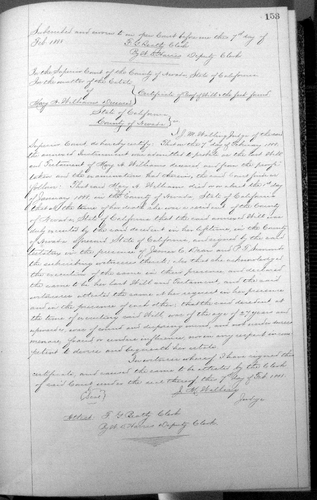 153
Subscribed and sworn to in open Court before me this 7th day of
Feb. 1881
F. G. Beatty Clerk
By W. D. Harris Deputy Clerk
In the Superior Court of the County of Nevada State of California
In the matter of the Estate
of
Hay A. Williams Deceased
Certificate of Proof of Will & the facts found
State of California
County of Nevada
I, J. M. Walling Judge of the said
Superior Court do hereby certify: That on the 7th day of February 1881,
the annexed Instrument was admitted to probate as the last Will
and Testament of Hay A. Williams deceased and from the proofs
taken and the examination had therein, the said Court finds as
follows: That said Hay A. Williams died on about the day
of January 1881 in the County of Nevada, State of California
that at the time of his death he was a resident of the County
of Nevada, State of California that the said annexed Will was
duly executed by the said decedent in his lifetime, in the County
of Nevada State of California and signed by the said
testator in the presence of James and
the subscribing witnesses thereto also that he acknowledged
the execution of the same in their presence and declared
the same to be his last Will and Testament, and the said
witnesses attested the same at his request in his presence
and in the presence of each other; that the said decedent at
the time of executing said Will was of the age of 27 years and
upwards, was of sound and disposing mind, and not under duress
menace, fraud or undue influence, nor in any respect incom-
petent to devise and bequeath his estate.
In witness whereof I have signed this
certificate, and caused the same to be attested by the Clerk
of said Court under the seal thereof this 7th day of Feb 1881.
(Seal)
J. M. Walling
Judge
Attest F. G. Beatty Clerk
By W. D. Harris Deputy Clerk